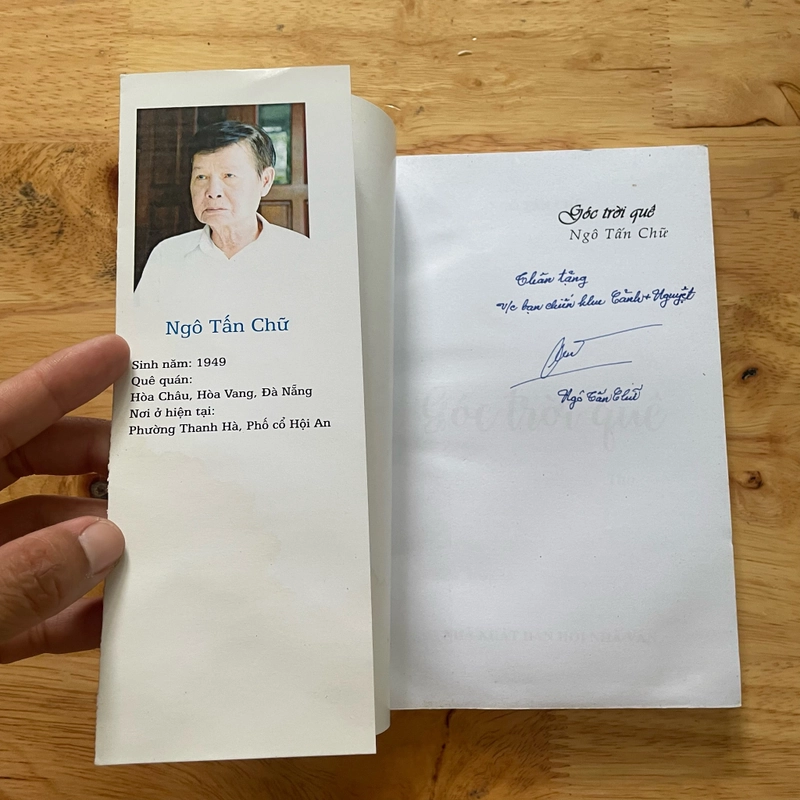 Ngô Tấn Chữ
Sinh năm: 1949
Quê quán:
Hòa Châu, Hòa Vang, Đà Nẵng
Nơi ở hiện tại:
Phường Thanh Hà, Phố cổ Hội An
Góc trời quê
Ngô Tấn Chữ
Thân tặng
v/c bạn chiến khu Cảnh + Nguyệt
Ngô Tấn Chữ
Góc trời quê
Thơ
NHÀ XUẤT BẢN HỘI NHÀ VĂN